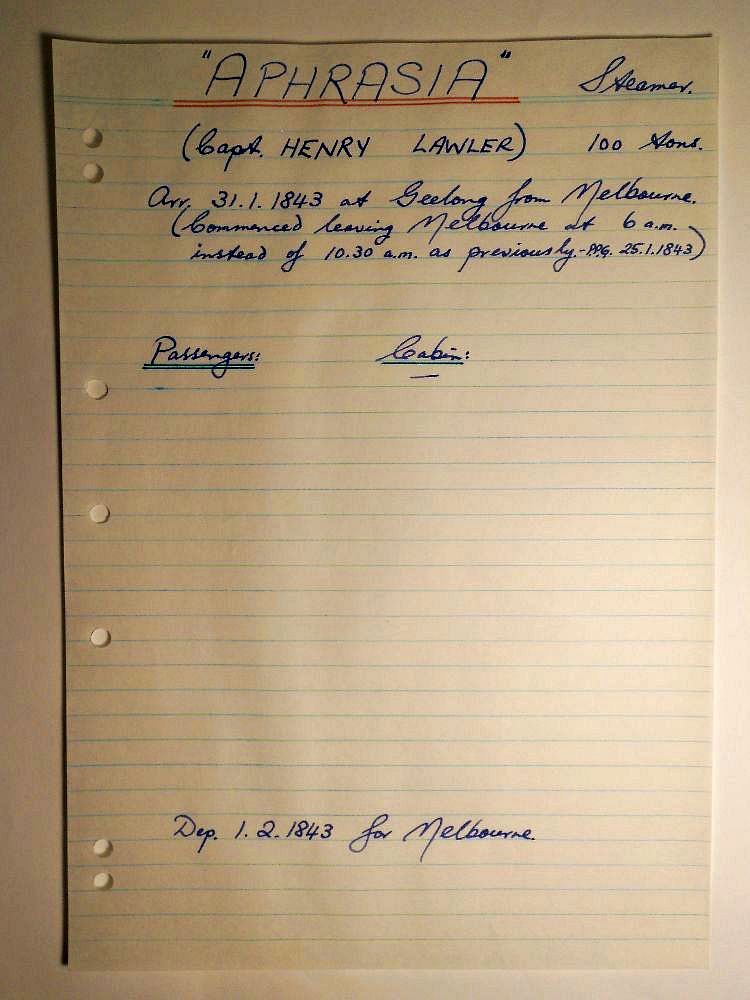 "APHRASIA" Steamer.
(Capt. HENRY LAWLER) 100 tons.
Arr. 31.1.1843 at Geelong from Melbourne.
(Commenced leaving Melbourne at 6 a.m.
instead of 10.30 a.m. as previously.-P.P.G. 25.1.1843)
Passengers: Cabin:
—
Dep. 1.2.1843 for Melbourne.